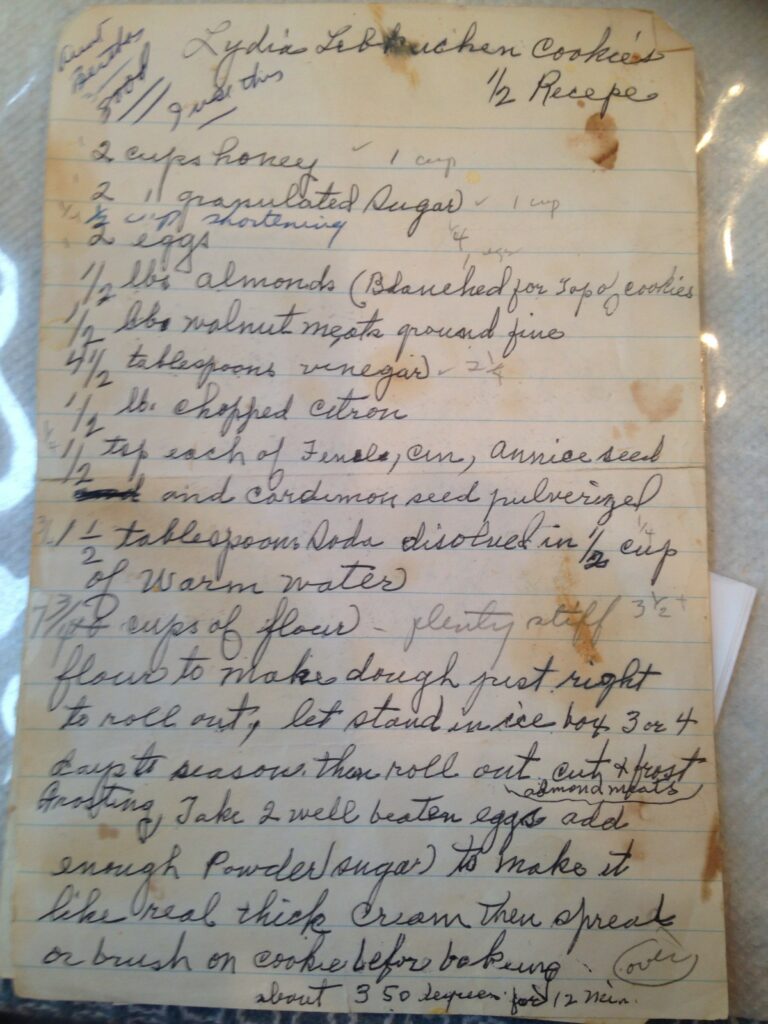 Aunt
Berthas
Good
I use this
Lydia Lebkuchen Cookies
1/2 Recepe
2 cups honey - 1 cup
2 " granulated Sugar - 1 cup
1/2 cup shortening 1/4
2 eggs 1 egg
1/2 lbs almonds (Blanched for Top of cookies
1/2 lbs walnut meats ground fine
4 1/2 tablespoons vinegar - 2 1/4
1/2 lb. chopped citron
1/2 tsp each of Fenele, cin, annice seed
and cardimon seed pulverized
1 1/2 tablespoons Soda disolved in 1/2 cup 1/4
of warm water
7 3/4 cups of flour - plenty stiff 3 1/2 +
flour to make dough just right
to roll out, let stand in ice box 3 or 4
days to season. then roll out cut & frost
almond meats
Frosting, Take 2 well beaten eggs add
enough Powder sugar to make it
like real thick cream then spread
or brush on cookie befor bakeing.
over
about 350 degrees for 12 min.